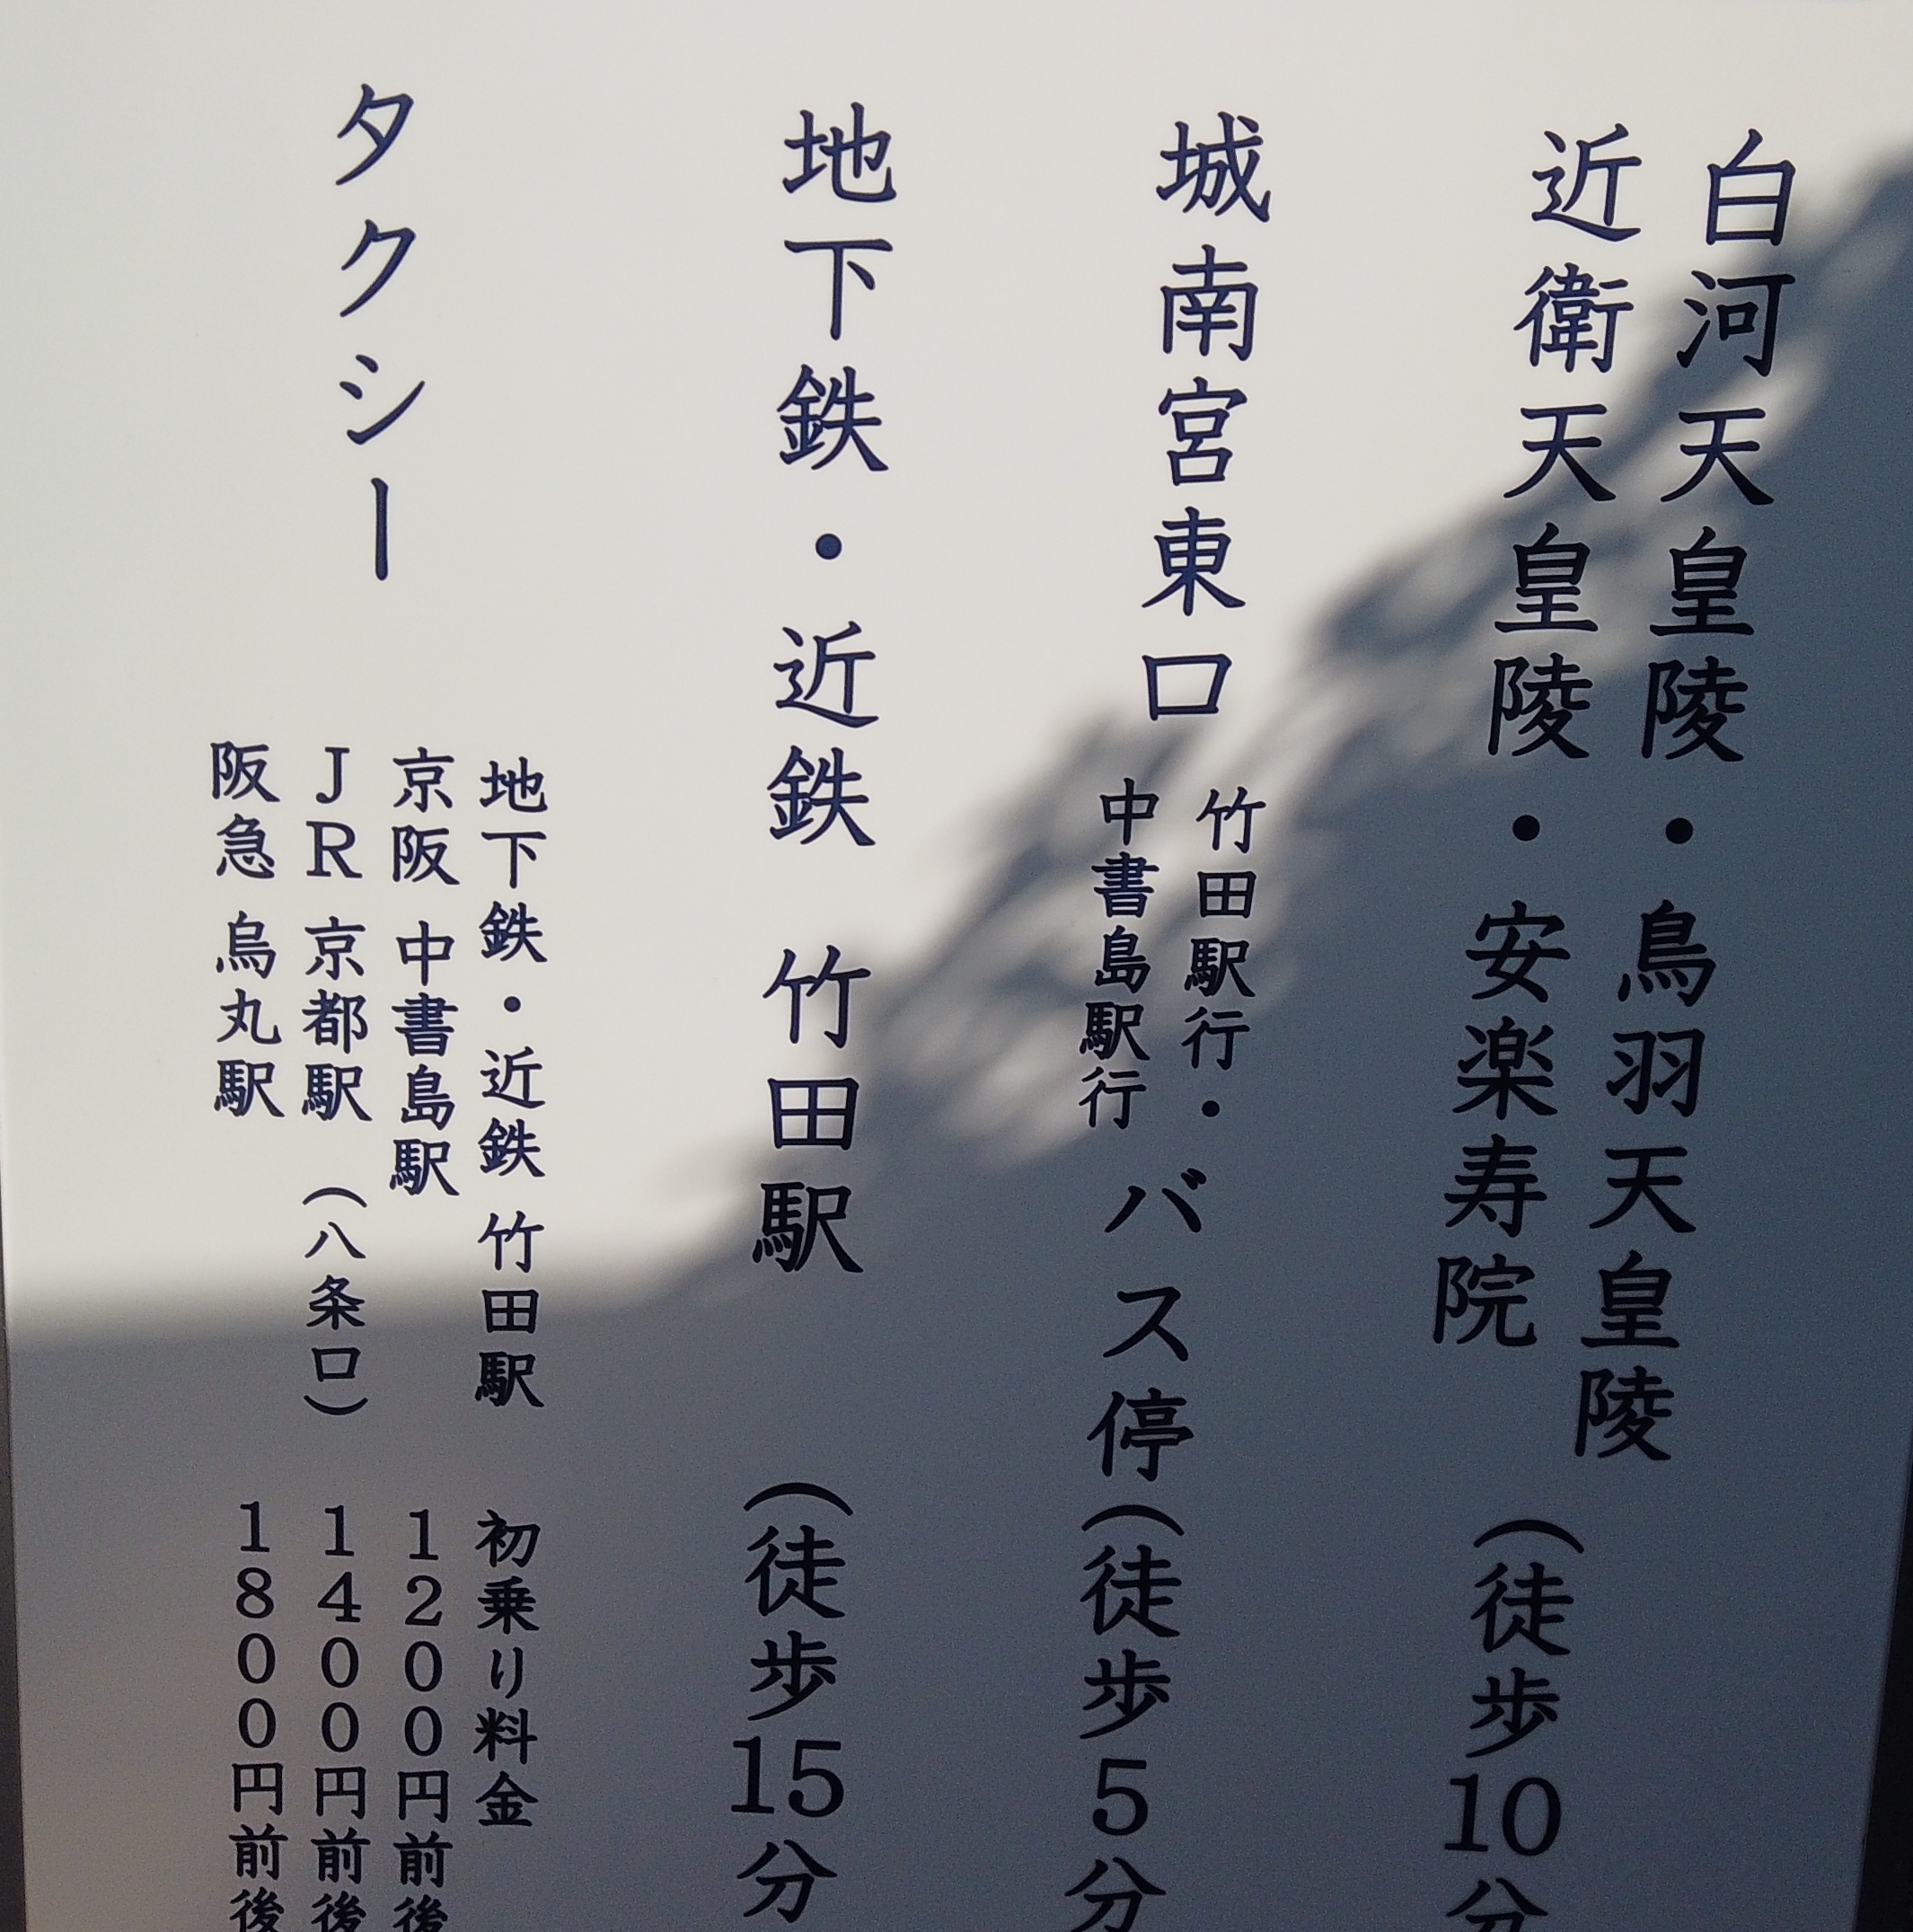 白河天皇陵・鳥羽天皇陵
近衛天皇陵・安楽寿院
（徒歩10分
城南宮東口
竹田駅行・
中書島駅行
バス停（徒歩5分
地下鉄・近鉄 竹田駅 （徒歩15分
タクシー
地下鉄・近鉄 竹田駅 初乗り料金
京阪 中書島駅 1200円前後
JR 京都駅（八条口） 1400円前後
阪急 烏丸駅 1800円前後